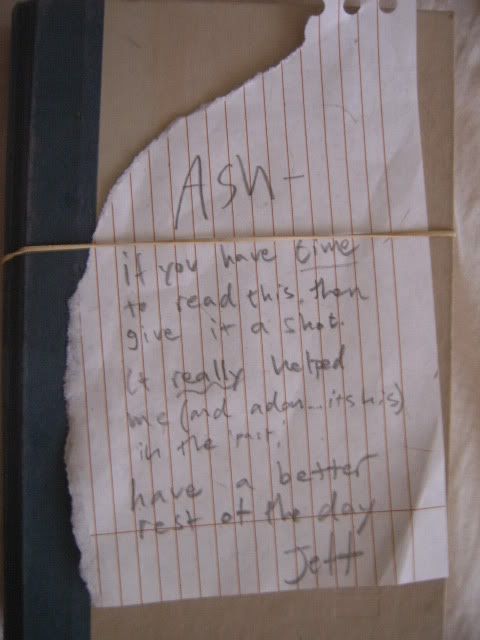 Ash -
if you have time
to read this, then
give it a shot.
it really helped
me (and adam... its his)
in the past.
have a better
rest of the day
Jeff